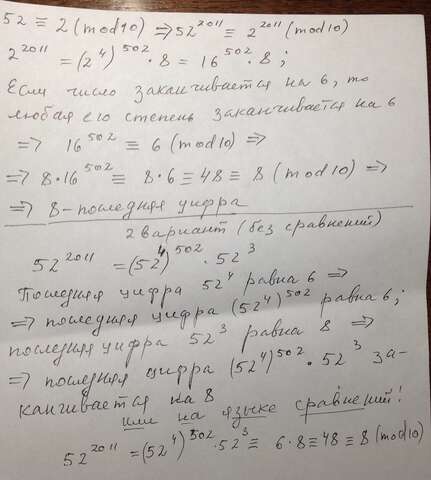 52 ≡ 2 (mod 10) ⇒ 52²⁰¹¹ ≡ 2²⁰¹¹ (mod 10)
2²⁰¹¹ = (2⁴)⁵⁰² · 8 = 16⁵⁰² · 8 ;
Если число заканчивается на 6, то
любая его степень заканчивается на 6
⇒ 16⁵⁰² ≡ 6 (mod 10) ⇒
⇒ 8 · 16⁵⁰² ≡ 8 · 6 ≡ 48 ≡ 8 (mod 10) ⇒
⇒ 8 - последняя цифра
2 вариант (без сравнений)
52²⁰¹¹ = (52⁴)⁵⁰² · 52³
Последняя цифра 52⁴ равна 6 ⇒
⇒ последняя цифра (52⁴)⁵⁰² равна 6 ;
последняя цифра 52³ равна 8 ⇒
⇒ последняя цифра (52⁴)⁵⁰² · 52³ за-
канчивается на 8
или на языке сравнений!
52²⁰¹¹ = (52⁴)⁵⁰² · 52³ ≡ 6 · 8 ≡ 48 ≡ 8 (mod 10)